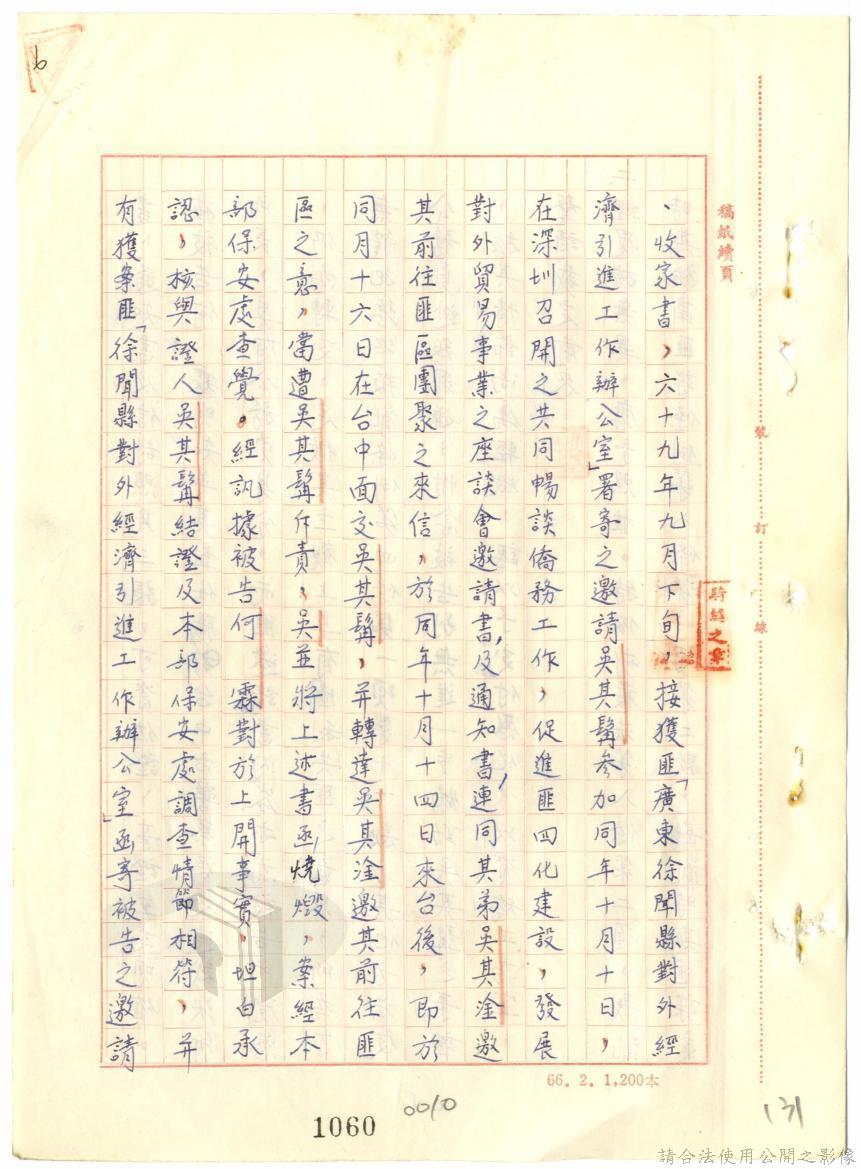 、收家書，六十九年九月下旬，接獲匪「廣東徐聞縣對外經
濟引進工作辦公室」署寄之邀請吳其髯參加同年十月十日，
在深圳召開之共同暢談僑務工作，促進匪四化建設，發展
對外貿易事業之座談會邀請書，及通知書，連同其弟吳其淦邀
其前往匪區團聚之來信，於同年十月十四日來台後，即於
同月十六日在台中面交吳其髯，并轉達吳其淦邀其前往匪
區之意，當遭吳其髯斥責，吳並將上述書函，燒燬，案經本
部保安處查覺。經訊據被告何　霖對於上開事實，坦白承
認，核與證人吳其髯結證及本部保安處調查情節相符，并
有獲案匪「徐聞縣對外經濟引進工作辦公室」函寄被告之邀請
稿紙續頁
裝
訂
線
騎縫之章
66. 2. 1,200本
1060
0010
131
6
請合法使用公開之影像